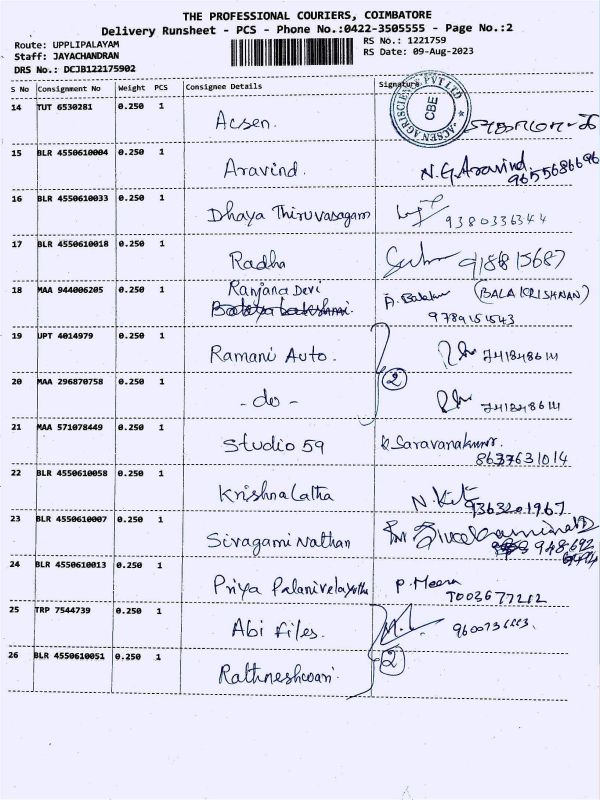 THE PROFESSIONAL COURIERS, COIMBATORE
Delivery Runsheet - PCS - Phone No.:0422-3505555 - Page No.:2
Route: UPPLIPALAYAM
Staff: JAYACHANDRAN
DRS No.: DCJB122175902
RS No.: 1221759
RS Date: 09-Aug-2023
S No Consignment No Weight PCS Consignee Details Signature
14 TUT 6530281 0.250 1 Acsen.
ACSEN AGRISCIENCE PVT LTD
CBE
15 BLR 4550610004 0.250 1 Aravind. N.G.Aravind.
9655686696
16 BLR 4550610033 0.250 1 Dhaya Thiruvasagam 9380336344
17 BLR 4550610018 0.250 1 Radha 918815687
18 MAA 944006205 0.250 1 Ranjana Devi (BALA KRISHNAN)
9789151543
19 UPT 4014979 0.250 1 Ramani Auto. 7418486111
20 MAA 296870758 0.250 1 - do - 7418486111
2
21 MAA 571078449 0.250 1 Studio 59 K Saravanakumar.
8637631014
22 BLR 4550610058 0.250 1 Krishna Latha 9363201967
23 BLR 4550610007 0.250 1 Sivagami Nathan
24 BLR 4550610013 0.250 1 Priya Palanivelayutha P. Meena
7003677212
25 TRP 7544739 0.250 1 Abi Files.
26 BLR 4550610051 0.250 1 Rathneshwari. 2